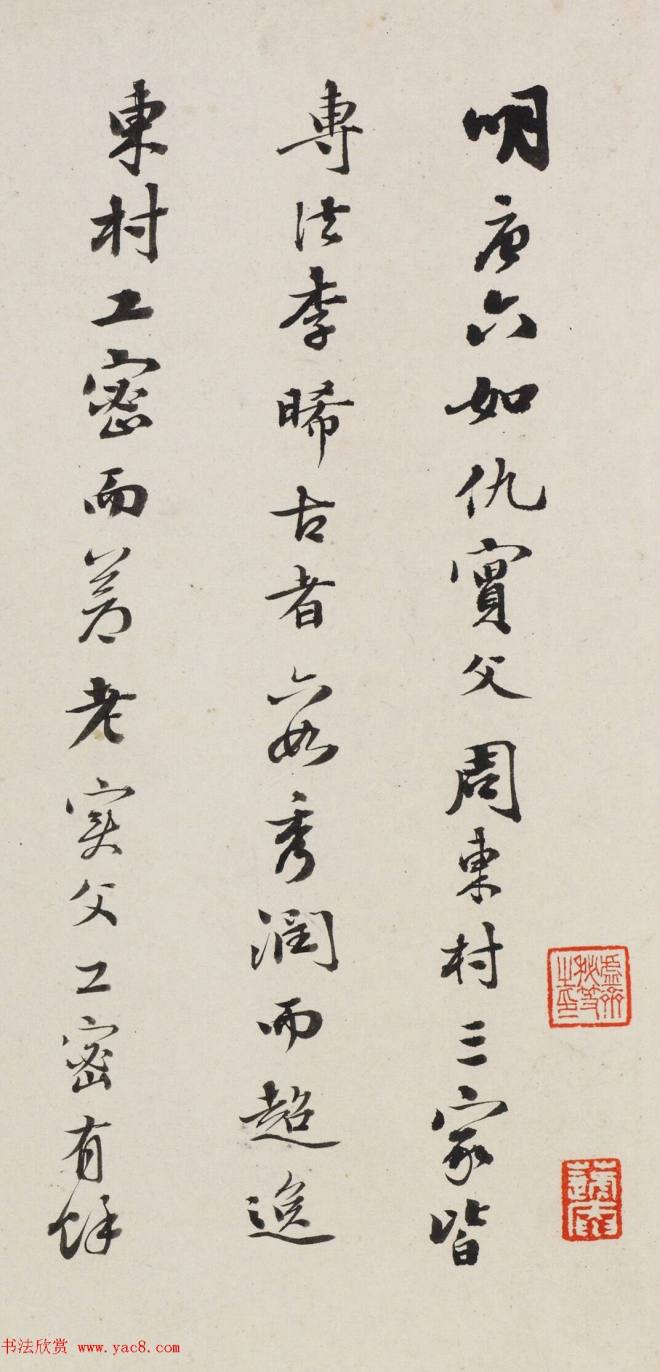 明唐六如仇實父周東村三家皆
專法李晞古者六如秀潤而超逸
東村工密而蒼老实父工密有餘
書法欣赏 www.yac8.com